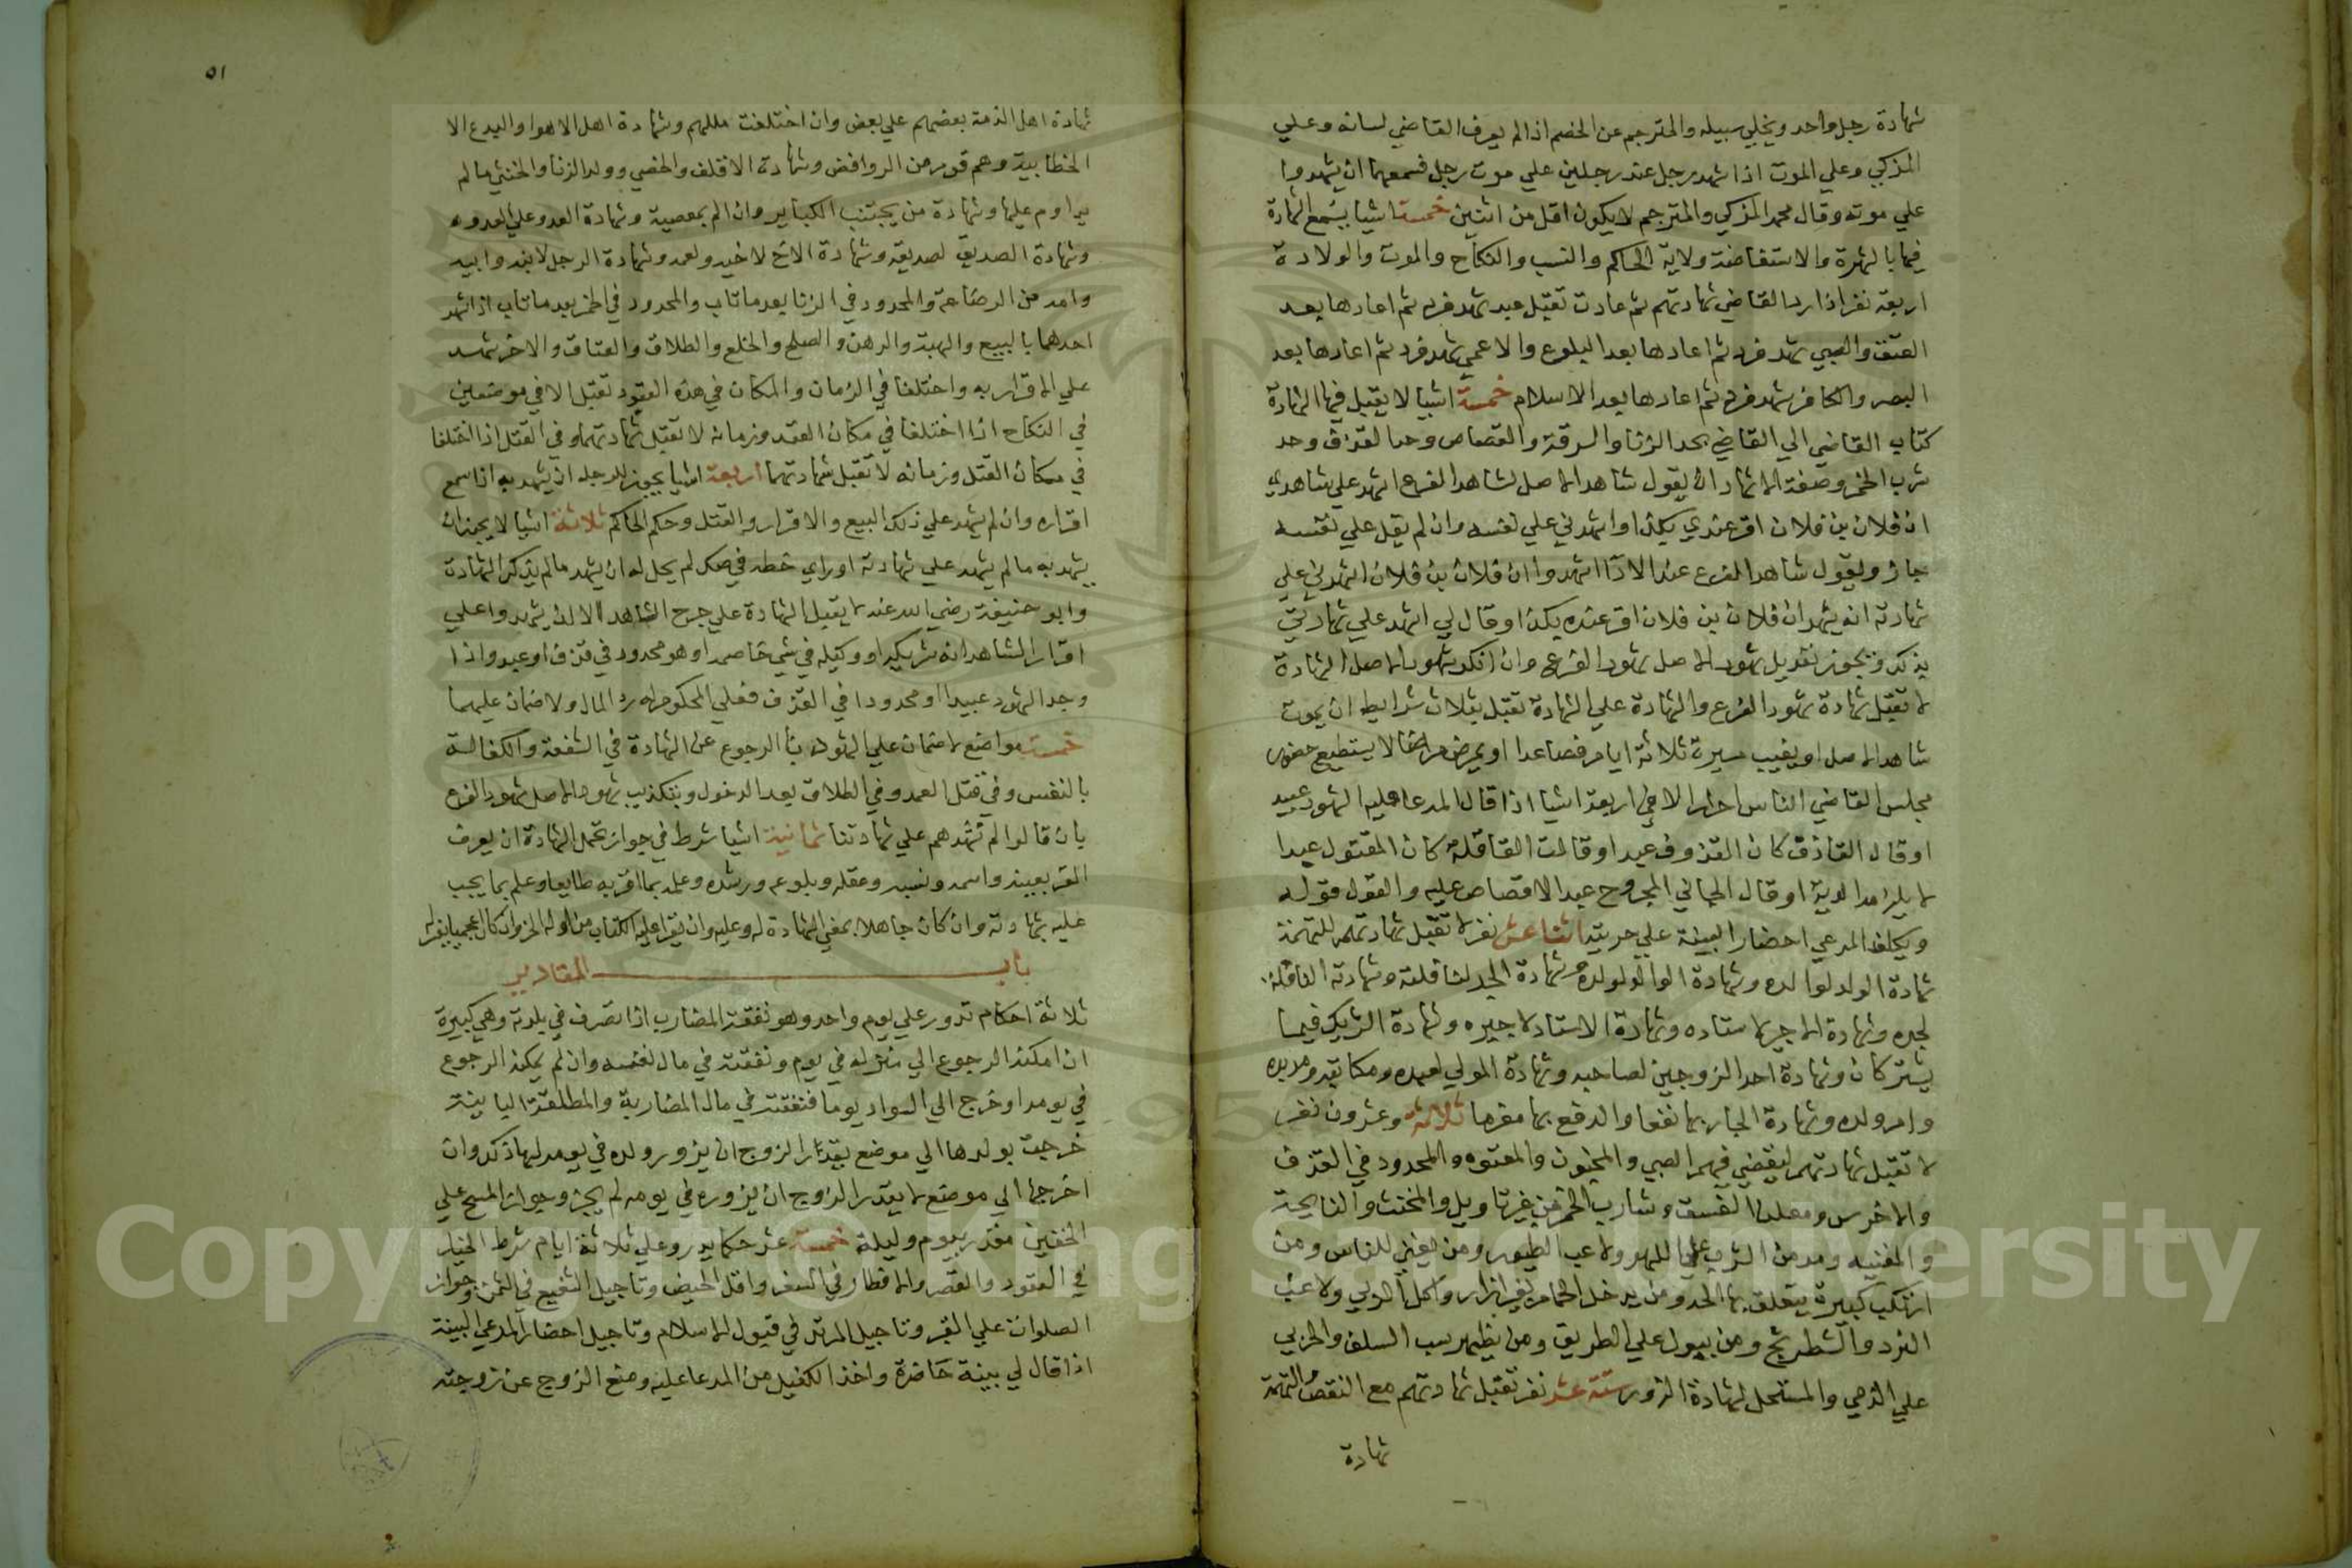 شهادة رجل واحد ويخلي سبيله والمترجم عن الخصم اذا لم يعرف القاضي لسانه وعلي
المزكي وعلي الموت اذا شهد رجل عند رجلين علي موت رجل فسمعهما ان يشهدوا
علي موته وقال محمد المزكي والمترجم لا يكون اقل من اثنين خمسة اشيا يسمع الشهادة
فيها بالشهرة والاستفاضة ولاية الحاكم والنسب والنكاح والموت والولادة
اربعة نفر اذا رد القاضي شهادتهم ثم عادت تقبل عبد شهد فرد ثم اعادها بعد
العتق والصبي شهد فرد ثم اعادها بعد البلوغ والاعمي شهد فرد ثم اعادها بعد
البصر والكافر شهد فرد ثم اعادها بعد الاسلام خمسة اشيا لا يقبل فيها الشهادة
كتاب القاضي الي القاضي بحد الزنا والسرقة والقصاص وحد القذف وحد
شرب الخمر وصفة الاشهاد ان يقول شاهد الاصل لشاهد الفرع اشهد علي شاهدي
ان فلان بن فلان اقر عندي بكذا واشهدني علي نفسه وان لم يقل علي نفسه
جاز ويقول شاهد الفرع عند الادا اشهدوا ان فلان بن فلان اشهدني علي
شهادته انه يشهد ان فلان بن فلان اقر عنده بكذا وقال لي اشهد علي شهادتي
بذلك ويجوز تعديل شهود الاصل شهود الفرع وان انكر شهود الاصل الشهادة
لا تقبل شهادة شهود الفرع والشهادة علي الشهادة تقبل بثلاث شرايط ان يموت
شاهد الاصل او يغيب مسيرة ثلاثة ايام فصاعدا او يمرض مرضا لا يستطيع حضور
مجلس القاضي الناس احرار الا في اربعة اشيا اذا قال المدعا عليه الشهود عبيد
او قال القاذف كان القذوف عبدا وقالت القاقلة كان المقتول عبدا
لا يلزمه الدية او قال الجاني المجروح عبد الاقصاص عليه والقول قوله
ويكلف المدعي احضار البينة علي حريته اثنا عشر نفر لا تقبل شهادتهم للتهمة
شهادة الولد لوالده وشهادة الوالد لولده وشهادة الجد لنافلته وشهادة النافلة
لجده وشهادة الاجير لاستاده وشهادة الاستاد لاجيره وشهادة الشريك فيما
يشتركان وشهادة احد الزوجين لصاحبه وشهادة المولي لعبده ومكاتبه ومدبره
وام ولده وشهادة الجار بها نفعا والدفع بها مغرما ثلاثة وعشرون نفر
لا تقبل شهادتهم لنقص فيهم الصبي والمجنون والمعتوه والمحدود في القذف
والاخرس ومعلن الفسق وشارب الخمر من غير تاويل والمخنث والنايحة
والمغنيه ومدمن الشرب علي اللهو ولاعب الطيور ومن يغني للناس ومن
ارتكب كبيرة يتعلق بها الحد ومن يدخل الحمام بغير ازار واكل الربي ولاعب
النرد والشطرنج ومن يبول علي الطريق ومن يظهر سب السلف والحربي
علي الذمي والمستحل لشهادة الزور ستة عشر نفر تقبل شهادتهم مع النقص والتهمة
شهادة
٥١
شهادة اهل الذمة بعضهم علي بعض وان اختلفت مللهم وشهادة اهل الاهوا والبدع الا
الخطابية وهم قوم من الروافض وشهادة الاقلف والخصي وولد الزنا والخنثي ما لم
يداوم عليها وشهادة من يجتنب الكباير وان الم بمعصية وشهادة العدو علي العدو
وشهادة الصديق لصديقه وشهادة الاخ لاخيه ولعمه وشهادة الرجل لابنه وابيه
وامه من الرضاعة والمحدود في الزنا بعد ما تاب والمحدود في الخمر بعد ما تاب اذا شهد
احدهما بالبيع والهبة والرهن والصلح والخلع والطلاق والعتاق والاخر شهد
علي الاقرار به واختلفا في الزمان والمكان في هذه العقود تقبل الا في موضعين
في النكاح اذا اختلفا في مكان العقد وزمانه لا تقبل شهادتهما وفي القتل اذا اختلفا
في مكان القتل وزمانه لا تقبل شهادتهما اربعة اشيا يجوز للرجل ان يشهد به اذا سمع
اقراره وان لم يشهد علي ذلك البيع والاقرار والقتل وحكم الحاكم ثلاثة اشيا لا يجوز ان
يشهد به ما لم يشهد علي شهادته او راي خطه في صك لم يحل له ان يشهد ما لم يتذكر الشهادة
وابو حنيفة رضي الله عنه لا يقبل الشهادة علي جرح الشاهد الا ان يشهدوا علي
اقرار الشاهد انه شريكه او وكيله في شي خاصمه او هو محدود في قذف او عبد واذا
وجد الشهود عبيدا او محدودا في القذف فعلي المحكوم له رد المال ولا ضمان عليهما
خمسة مواضع لا ضمان علي الشهود بنا الرجوع عن الشهادة في الشفعة والكفالة
بالنفس وفي قتل العمد وفي الطلاق بعد الدخول وبتكذيب شهود الاصل شهود الفرع
بان قالوا لم نشهدهم علي شهادتنا ثمانية اشيا شرط في جواز تحمل الشهادة ان يعرف
المقر بعينه واسمه ونسبه وعقله وبلوغه ورشده وعلمه بما اقر به طايعا وعلم بما يجب
عليه بشهادته وان كان جاهلا بمغي الشهادة له وعليه وان يقرا عليه الكتاب من اوله الي اخره وان كان اعجميا يفسر له
باب المقادير
ثلاثة احكام تدور علي يوم واحد وهو نفقة المضارب اذا تصرف في بلدته وهي كبيرة
ان امكنه الرجوع الي منزله في يوم ونفقته في مال نفسه وان لم يمكنه الرجوع
في يومه او خرج الي السواد يوما فنفقته في مال المضاربة والمطلقة الباينة
خرجت بولدها الي موضع بقدر الزوج ان يزور ولده في يومه لها ذلك وان
اخرجها الي موضع لا يقدر الزوج ان يزوره في يومه لم يجز وجواز المسح علي
الخفين مقدر بيوم وليلة خمسة عشر حكما يدور علي ثلاثة ايام شرط الخيار
في العقود والقصر والافطار في السفر واقل الحيض وتاجيل الشفيع في الثمن وجواز
الصلوات علي القبر وتاجيل المرتد في قبول الاسلام وتاجيل احضار المدعي البينة
اذا قال لي بينة حاضرة واخذ الكفيل من المدعا عليه ومنع الزوج عن زوجته
Copyright © King Saud University